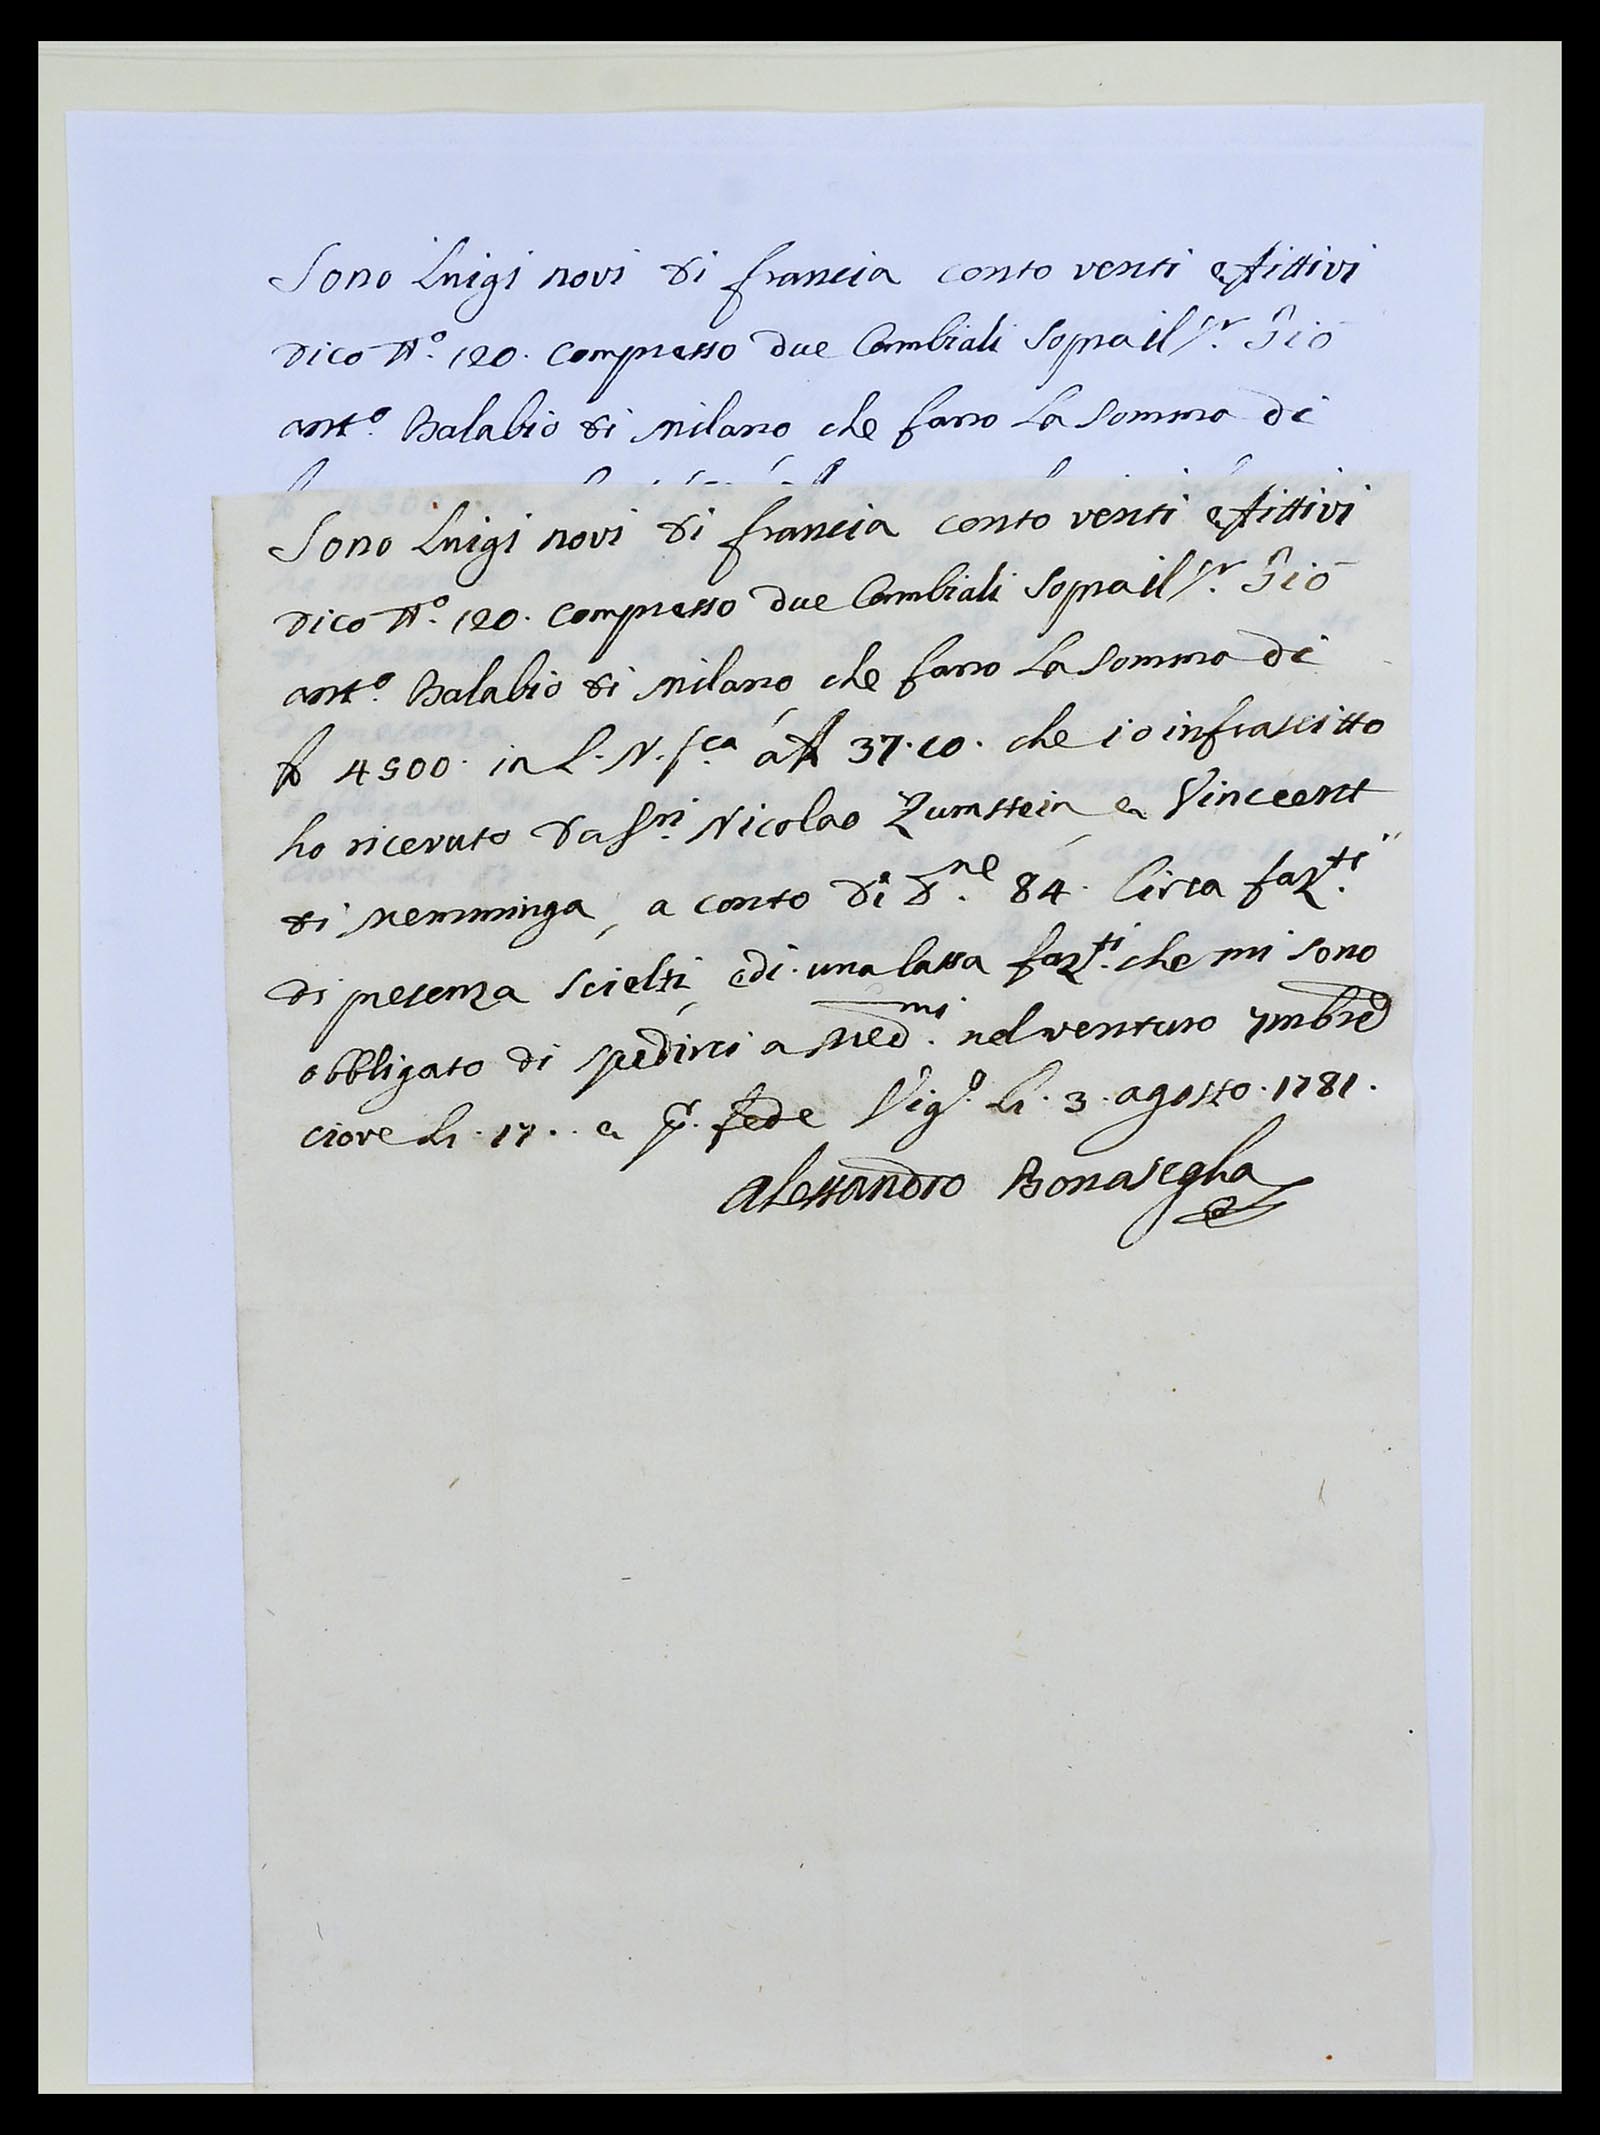 Sono Luigi novi di francia conto venti effittivi
dico N.º 120. Compresso due Cambiali Sopra il Sr. Gio
antº. Balabio di Milano che fano La Somma di
Sono Luigi novi di francia conto venti effittivi
dico N.º 120. Compresso due Cambiali Sopra il Sr. Gio
antº. Balabio di Milano che fano La Somma di
4500. in L. N. fca. á 37.10. che io infrascitto
ho riceruto da Sri. Nicolao Zumstein e Vinceent
di Memminga, a conto di dne. 84. Circa fazti.
di presenza Scielti, e di una lassa fazti. che mi sono
obbligato di spedirci a Medmi. nel venturo 7mbre
ciove Li. 17.. e pr. fede Vigº. Li. 3. agosto. 1781.
Alessandro Bonasegha